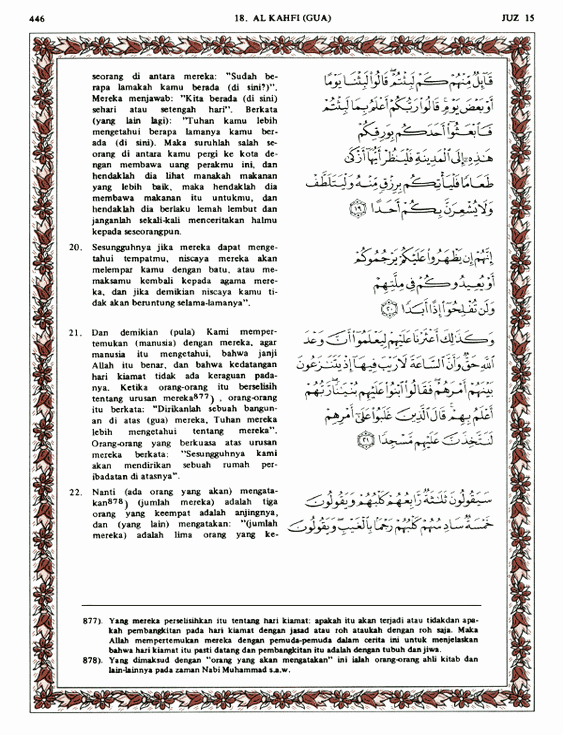 446 18. AL KAHFI (GUA) JUZ 15
seorang di antara mereka: "Sudah be-
rapa lamakah kamu berada (di sini?)".
Mereka menjawab: "Kita berada (di sini)
sehari atau setengah hari". Berkata
(yang lain lagi): "Tuhan kamu lebih
mengetahui berapa lamanya kamu ber-
ada (di sini). Maka suruhlah salah se-
orang di antara kamu pergi ke kota de-
ngan membawa uang perakmu ini, dan
hendaklah dia lihat manakah makanan
yang lebih baik, maka hendaklah dia
membawa makanan itu untukmu, dan
hendaklah dia berlaku lemah lembut dan
janganlah sekali-kali menceritakan halmu
kepada seseorangpun.
قَآئِلٌ مِّنْهُمْ كَمْ لَبِثْتُمْ قَالُوا۟ لَبِثْنَا يَوْمًا
أَوْ بَعْضَ يَوْمٍ قَالُوا۟ رَبُّكُمْ أَعْلَمُ بِمَا لَبِثْتُمْ
فَٱبْعَثُوٓا۟ أَحَدَكُم بِوَرِقِكُمْ
هَٰذِهِۦٓ إِلَى ٱلْمَدِينَةِ فَلْيَنظُرْ أَيُّهَآ أَزْكَىٰ
طَعَامًا فَلْيَأْتِكُم بِرِزْقٍ مِّنْهُ وَلْيَتَلَطَّفْ
وَلَا يُشْعِرَنَّ بِكُمْ أَحَدًا ١٩
20. Sesungguhnya jika mereka dapat menge-
tahui tempatmu, niscaya mereka akan
melempar kamu dengan batu, atau me-
maksamu kembali kepada agama mere-
ka, dan jika demikian niscaya kamu ti-
dak akan beruntung selama-lamanya".
إِنَّهُمْ إِن يَظْهَرُوا۟ عَلَيْكُمْ يَرْجُمُوكُمْ
أَوْ يُعِيدُوكُمْ فِى مِلَّتِهِمْ
وَلَن تُفْلِحُوٓا۟ إِذًا أَبَدًا ٢٠
21. Dan demikian (pula) Kami memper-
temukan (manusia) dengan mereka, agar
manusia itu mengetahui, bahwa janji
Allah itu benar, dan bahwa kedatangan
hari kiamat tidak ada keraguan pada-
nya. Ketika orang-orang itu berselisih
tentang urusan mereka877) , orang-orang
itu berkata: "Dirikanlah sebuah bangun-
an di atas (gua) mereka, Tuhan mereka
lebih mengetahui tentang mereka".
Orang-orang yang berkuasa atas urusan
mereka berkata: "Sesungguhnya kami
akan mendirikan sebuah rumah per-
ibadatan di atasnya".
وَكَذَٰلِكَ أَعْثَرْنَا عَلَيْهِمْ لِيَعْلَمُوٓا۟ أَنَّ وَعْدَ
ٱللَّهِ حَقٌّ وَأَنَّ ٱلسَّاعَةَ لَا رَيْبَ فِيهَآ إِذْ يَتَنَٰزَعُونَ
بَيْنَهُمْ أَمْرَهُمْ فَقَالُوا۟ ٱبْنُوا۟ عَلَيْهِم بُنْيَٰنًا رَّبُّهُمْ
أَعْلَمُ بِهِمْ قَالَ ٱلَّذِينَ غَلَبُوا۟ عَلَىٰٓ أَمْرِهِمْ
لَنَتَّخِذَنَّ عَلَيْهِم مَّسْجِدًا ٢١
22. Nanti (ada orang yang akan) mengata-
kan878) (jumlah mereka) adalah tiga
orang yang keempat adalah anjingnya,
dan (yang lain) mengatakan: "(jumlah
mereka) adalah lima orang yang ke-
سَيَقُولُونَ ثَلَٰثَةٌ رَّابِعُهُمْ كَلْبُهُمْ وَيَقُولُونَ
خَمْسَةٌ سَادِسُهُمْ كَلْبُهُمْ رَجْمًۢا بِٱلْغَيْبِ وَيَقُولُونَ
877). Yang mereka perselisihkan itu tentang hari kiamat: apakah itu akan terjadi atau tidakdan apa-
kah pembangkitan pada hari kiamat dengan jasad atau roh ataukah dengan roh saja. Maka
Allah mempertemukan mereka dengan pemuda-pemuda dalam cerita ini untuk menjelaskan
bahwa hari kiamat itu pasti datang dan pembangkitan itu adalah dengan tubuh dan jiwa.
878). Yang dimaksud dengan "orang yang akan mengatakan" ini ialah orang-orang ahli kitab dan
lain-lainnya pada zaman Nabi Muhammad s.a.w.